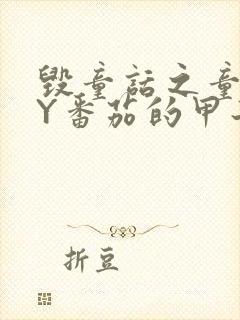 毁童话之童
Y番茄的甲
折豆